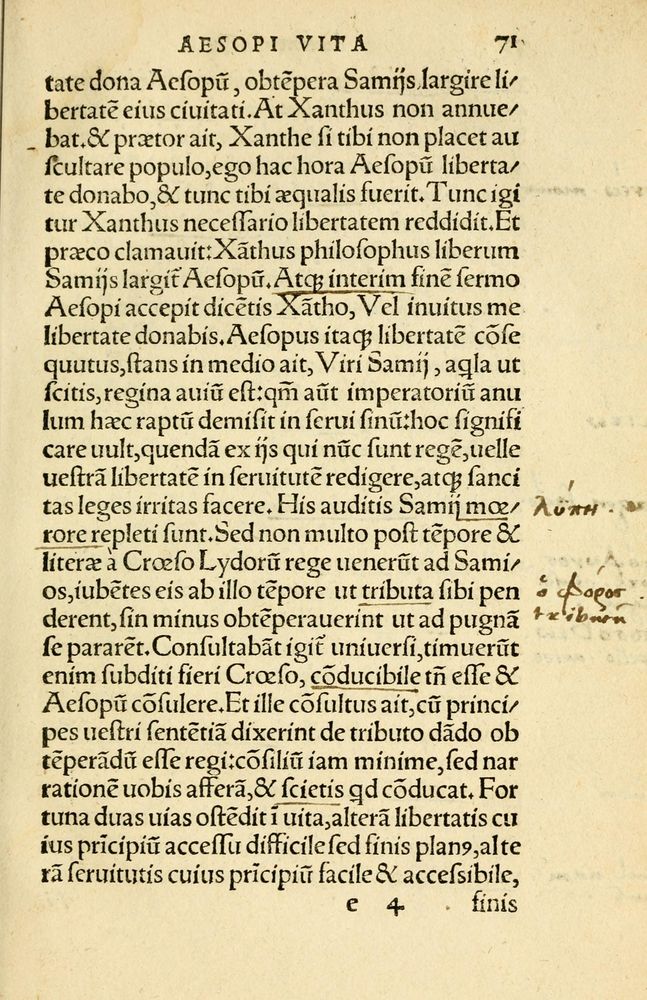 AESOPI VITA 71
tate dona Aeſopū, obtēpera Samijs, largire li/
bertatē eius ciuitati. At Xanthus non annue/
bat. & prætor ait, Xanthe ſi tibi non placet au
ſcultare populo, ego hac hora Aeſopū liberta/
te donabo, & tunc tibi æqualis fuerit. Tunc igi
tur Xanthus neceſſario libertatem reddidit. Et
præco clamauit: Xāthus philoſophus liberum
Samijs largit᷑ Aeſopū. Atqꝫ interim finē ſermo
Aeſopi accepit dicētis Xātho, Vel inuitus me
libertate donabis. Aeſopus itaqꝫ libertatē cōſe
quutus, ſtans in medio ait, Viri Samij, aq̃la ut
ſcitis, regina auiū eſt: qm̄ aūt imperatoriū anu
lum hæc raptū demiſit in ſerui ſinū: hoc ſignifi
care uult, quendā ex ijs qui nūc ſunt regē, uelle
ueſtrā libertatē in ſeruitutē redigere, atqꝫ ſanci
tas leges irritas facere. His auditis Samij mœ/
rore repleti ſunt. Sed non multo poſt tēpore &
literæ à Crœſo Lydorū rege uenerūt ad Sami/
os, iubētes eis ab illo tēpore ut tributa ſibi pen
derent, ſin minus obtēperauerint ut ad pugnā
ſe pararēt. Conſultabāt igit᷑ uniuerſi, timuerūt
enim ſubditi fieri Crœſo, cōducibile tn̄ eſſe &
Aeſopū cōſulere. Et ille cōſultus ait, cū princi/
pes ueſtri ſentētiā dixerint de tributo dādo ob
tēperādū eſſe regi: cōſiliū iam minime, ſed nar
rationē uobis afferā, & ſcietis qd cōducat. For
tuna duas uías oſtēdit ī uita, alterā libertatis cu
ius prīcipiū acceſſu difficile ſed finis planꝰ, alte
rā ſeruitutis cuius prīcipiū facile & acceſsibile,
e 4 finis
λύπη
ὁ φόρος